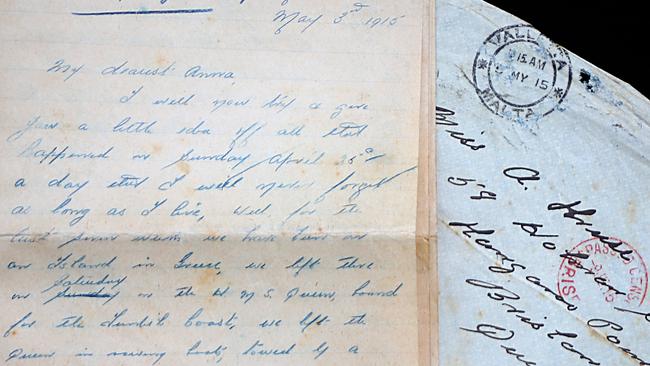 May 3rd 1915
My dearest Anna,
I will now try & give
you a little idea of all that
happened on Sunday April 25th
a day that I will never forget
as long as I live, Well, for the
last seven weeks we have been on
an Island in Greece, we left there
on Saturday Sunday on the H M S. Queen, bound
for the Turkish coast, we left the
Queen in rowing boats, towed by a
VALLETTA
15. AM
MY 15
MALTA
Miss A.
59
Hardgrave
Brisban
Que
PASSED CENS